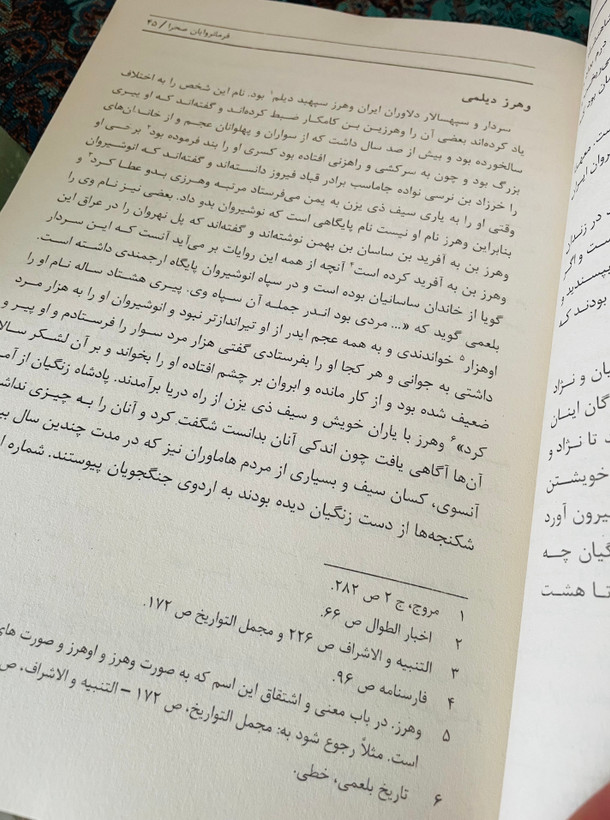 فرمانروایان صحرا / ۴۵
وهرز دیلمی
سردار و سپهسالار دلاوران ایران وهرز سپهبد دیلم۱ بود. نام این شخص را به اختلاف
یاد کرده‌اند بعضی آن را وهرزبن بن کامکار ضبط کرده‌اند و گفته‌اند که او پیری
سالخورده بود و بیش از صد سال داشت که از سواران و پهلوانان عجم و از خاندان‌های
بزرگ بود و چون به سرکشی و راهزنی افتاده بود کسری او را بند فرموده بود۲ برخی او
را خرزاد بن نرسی نواده جاماسب برادر قباد فیروز دانسته‌اند و گفته‌اند که انوشیروان
وقتی او را به یاری سیف ذی یزن به یمن می‌فرستاد مرتبه وهرزی بدو عطا کرد۳ و
بنابراین وهرز نام او نیست نام پایگاهی است که نوشیروان بدو داد. بعضی نیز نام وی را
وهرز بن به آفرید بن ساسان بن بهمن نوشته‌اند و گفته‌اند که پل نهروان را در عراق این
وهرز بن به آفرید کرده است۴ آنچه از همه این روایات بر می‌آید آنست که این سردار
گویا از خاندان ساسانیان بوده است و در سپاه انوشیروان پایگاه ارجمندی داشته است.
بلعمی گوید که «... مردی بود اندر جمله آن سپاه وی. پیری هشتاد ساله نام او را
اوهزار۵ خواندندی و به همه عجم ایدر از او تیراندازتر نبود و انوشیروان او را به هزار مرد
داشتی به جوانی و هر کجا او را بفرستادی گفتی هزار مرد سوار را فرستادم و او پیر و
ضعیف شده بود و از کار مانده و ابروان بر چشم افتاده او را بخواند و بر آن لشکر
کرد»۶ وهرز با یاران خویش و سیف ذی یزن از راه دریا برآمدند. پادشاه زنگیان از
آن‌ها آگاهی یافت چون اندکی آنان بدانست شگفت کرد و آنان را به چیزی
آنسوی، کسان سیف و بسیاری از مردم هاماوران نیز که در مدت چندین سال
شکنجه‌ها از دست زنگیان دیده بودند به اردوی جنگجویان پیوستند. شماره
۱ مروج، ج ۲ ص ۲۸۲.
۲ اخبار الطوال ص ۶۶.
۳ التنبیه و الاشراف ص ۲۲۶ و مجمل التواریخ ص ۱۷۲.
۴ فارسنامه ص ۹۶.
۵ وهرز. در باب معنی و اشتقاق این اسم که به صورت وهرز و اوهرز و صورت های
است. مثلاً رجوع شود به: مجمل التواریخ، ص ۱۷۲ – التنبیه و الاشراف، ص
۶ تاریخ بلعمی، خطی.
در زندان
است و اگر
پسندید و
بودند که
یان و نژاد
گان اینان
تا نژاد و
خویشتن
بیرون آورد
گیان چه
تا هشت